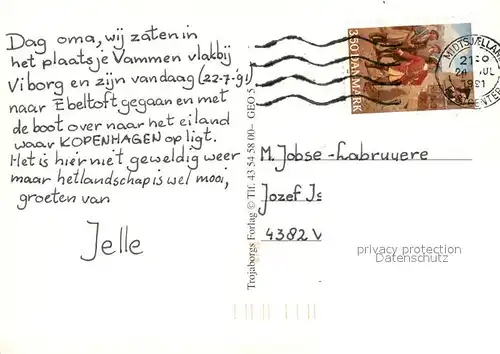 Dag oma, wij zaten in
het plaatsje Vammen vlakbij
Viborg en zijn vandaag (22-7-91)
naar Ebeltoft gegaan en met
de boot over naar het eiland
waar KOPENHAGEN op ligt.
Het is hier niet geweldig weer
maar het landschap is wel mooi,
groeten van
Jelle
Trojaborgs Forlag © Tlf. 43 54 58 00 – GEO 5
350 DANMARK
MIDTSJÆLLAND
1991
M. Jobse-Labruyere
Jozef Is
4382 V
privacy protection
Datenschutz